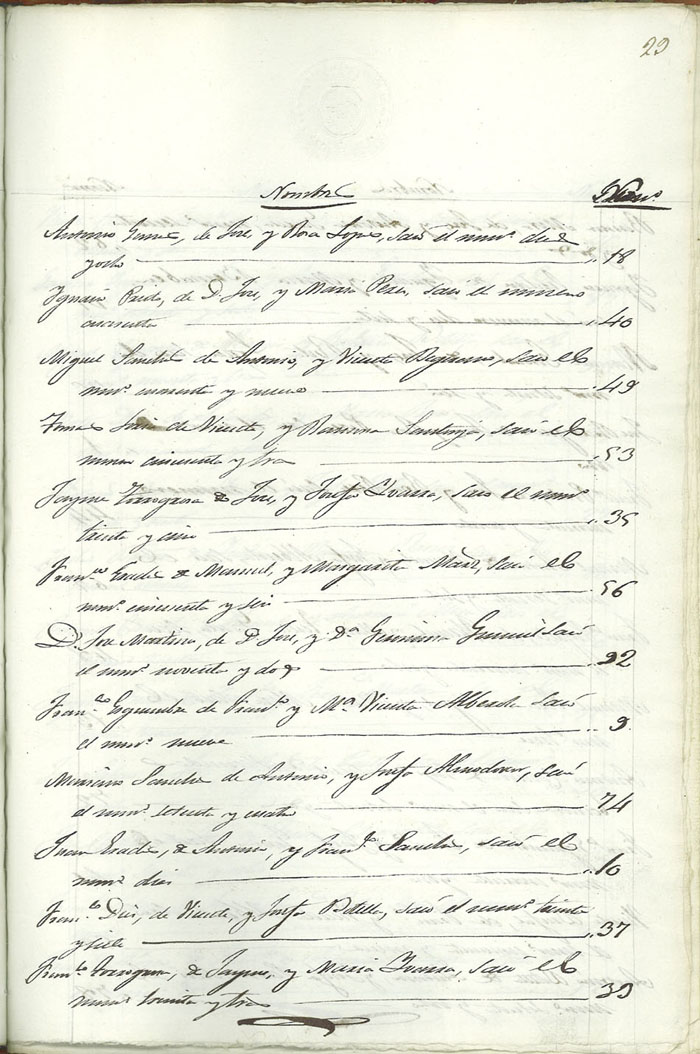 29
Nombres Num.º
Antonio Gomez, de Jose, y Rosa Lopez, sacó el num.º diez
y ocho 18
Ygnacio Prido, de D. Jose, y Maria Perez, sacó el numero
cuarenta 40
Miguel Sanchez de Antonio, y Vicenta sacó el
num.º cuarenta y nueve 49
Tomas de Vicente, y Ramona Santonja, sacó el
numero cincuenta y tres 53
Jayme de Jose, y Josefa Ivarra, saco el num.º
treinta y cinco 35
Fran.co de Manuel, y Margarita sacó el
num.º cincuenta y seis 56
D. Jose Martinez, de D. Jose, y D.ª sacó
el num.º noventa y dos 92
Fran.co de Fran.co y M.ª Vicenta Alberola sacó
el num.º nueve 9
Mariano Sanchez de Antonio, y Josefa Almodovar, sacó
el num.º setenta y cuatro 74
Juan de Antonio, y Fran.ca Sanchez, sacó el
num.º diez 10
Fran.co de Vicente, y Josefa Botella, sacó el num.º treinta
y siete 37
Fran.co de Jayme, y Maria Ivarra, sacó el
num.º treinta y tres